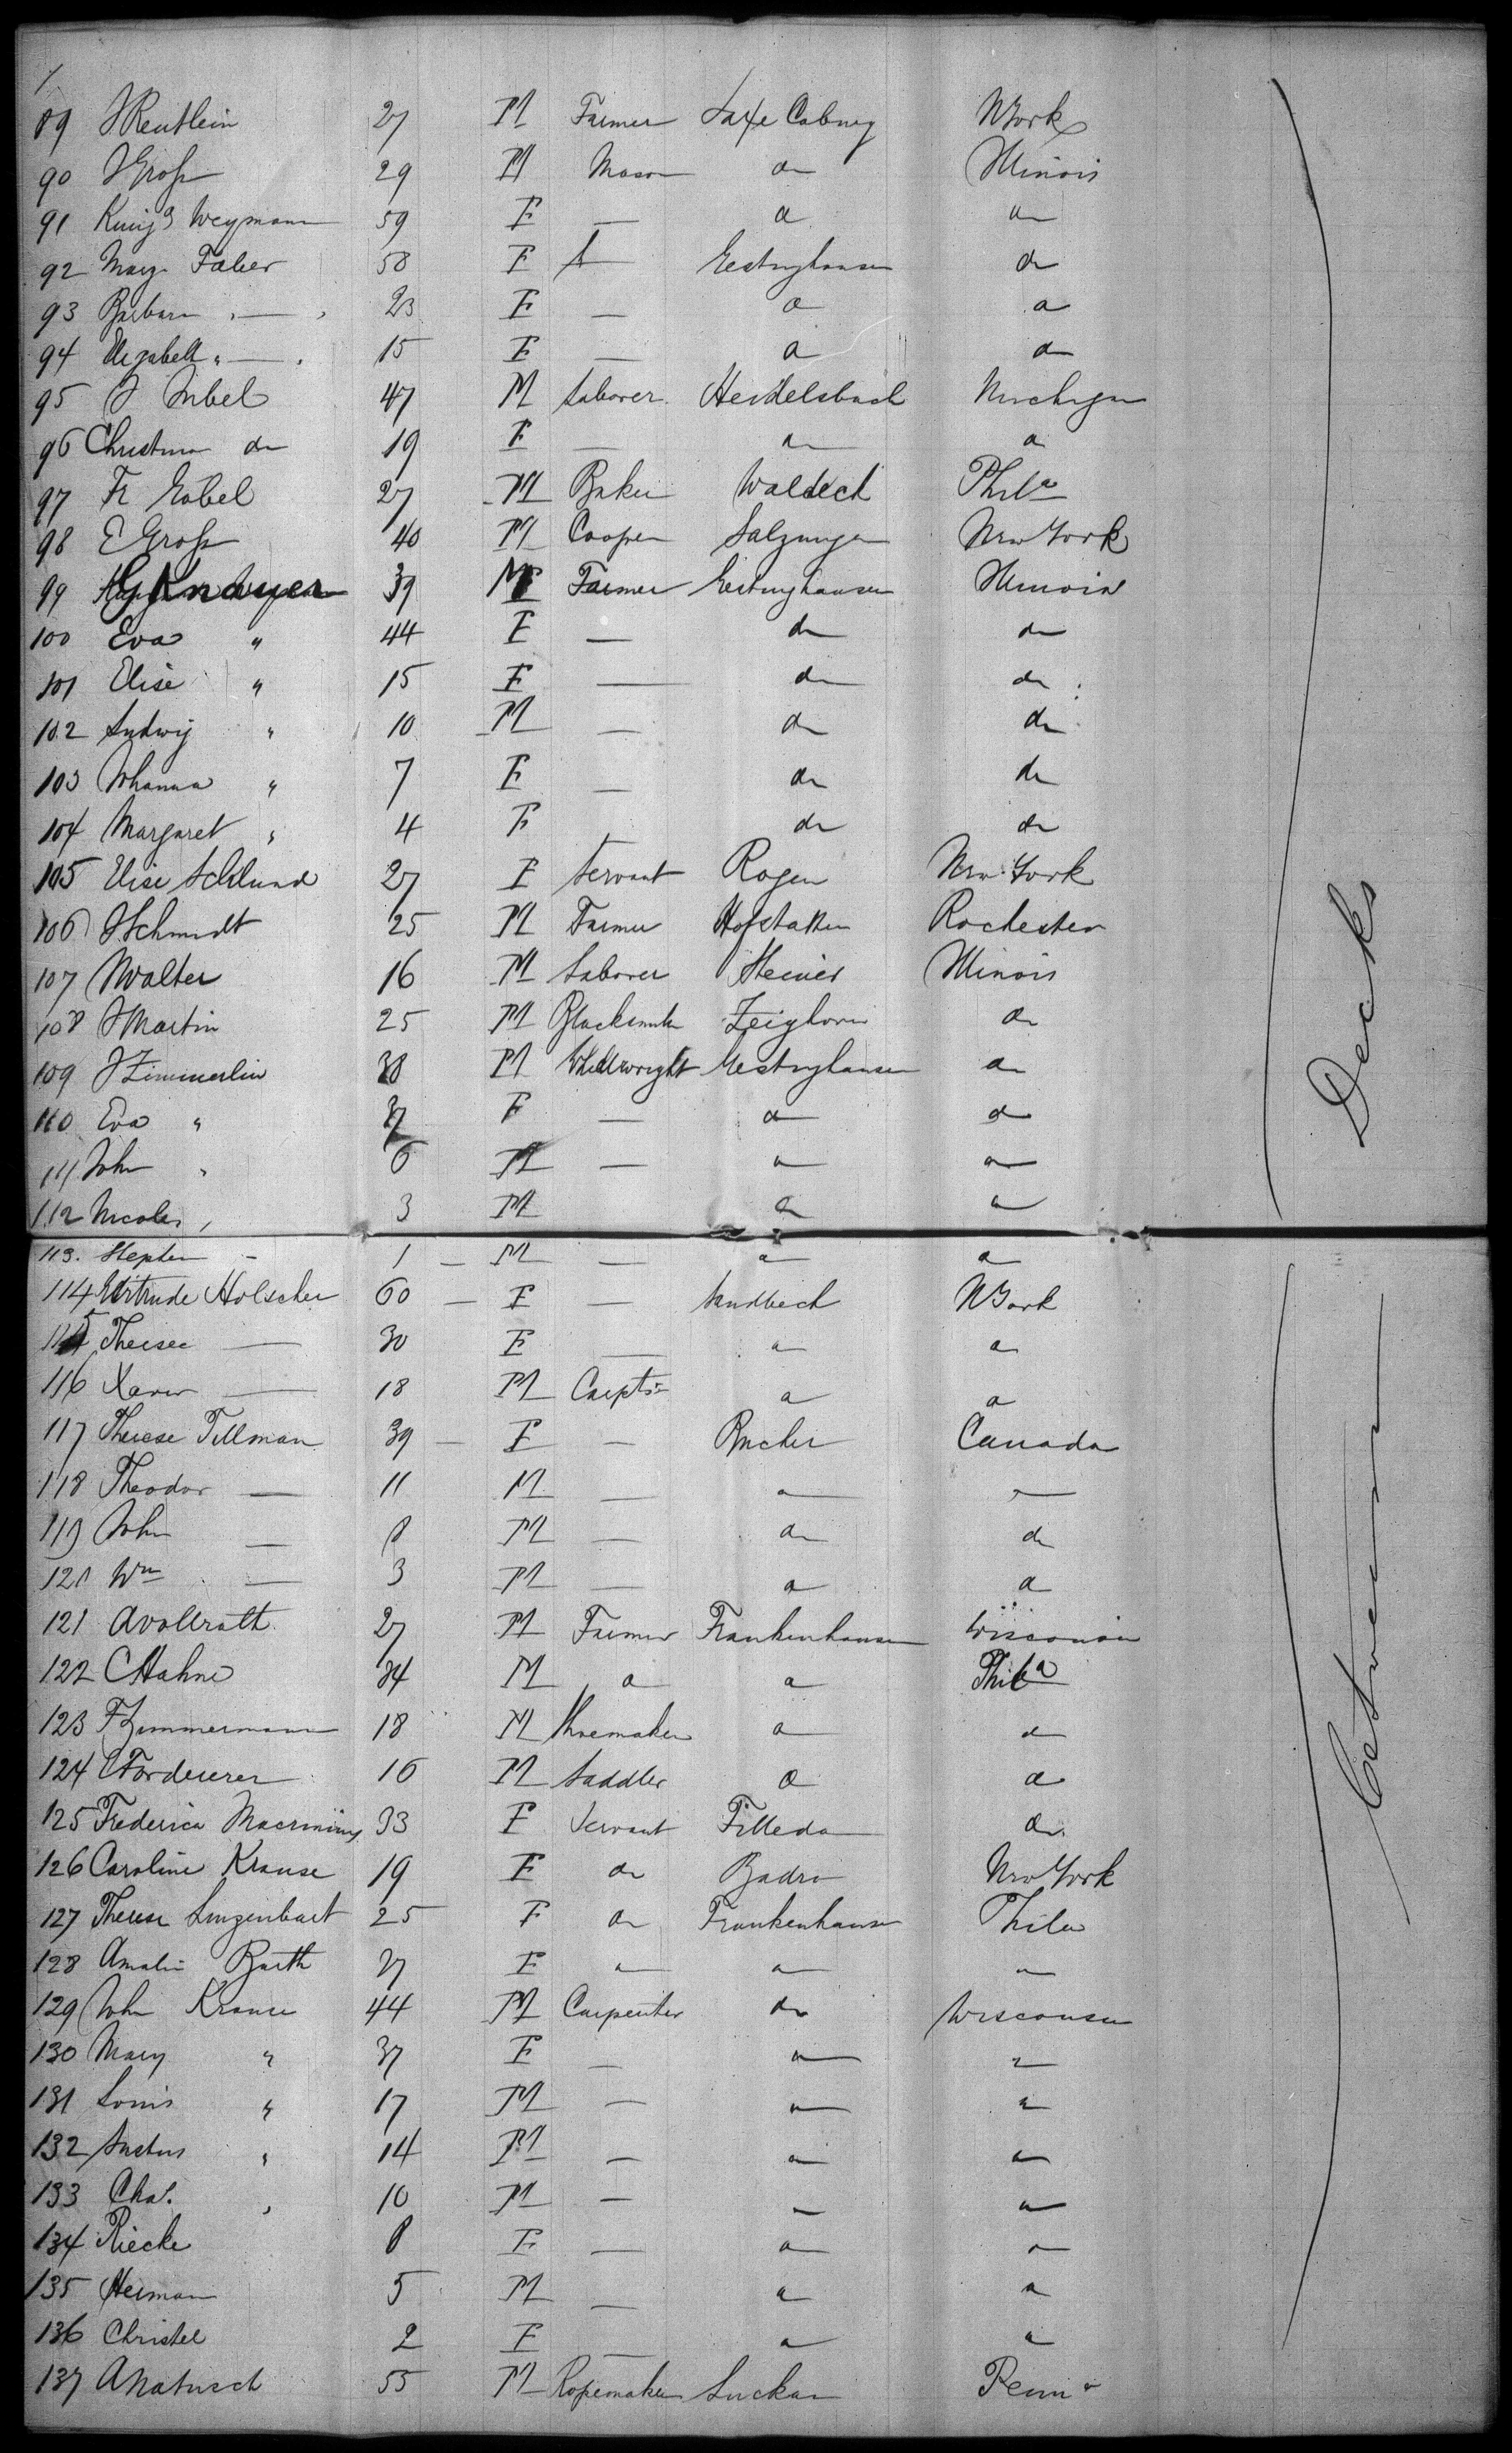 89 J Reutlein 27 M Farmer Saxe Coburg N York
90 J Groß 29 M Mason do Illinois
91 Kunig Weymann 59 F — do do
92 Marg Faber 58 F — do
93 Barbara " — " 23 F — do do
94 Elizabeth " — " 15 F — do do
95 J 47 M Laborer Heidelsbach Michigan
96 Christina do 19 F — do do
97 Fr Gobel 27 M Baker Waldeck Phila
98 E Groß 40 M Cooper Salzungen New York
99 G Knauer 39 M Farmer Illinois
100 Eva " 44 F — do do
101 Elise " 15 F — do do
102 Ludwig " 10 M — do do
103 Johanna " 7 F — do do
104 Margaret " 4 F do do
105 Elise Schlund 27 F Servant Rogen New York
106 J Schmidt 25 M Farmer Hofstatten Rochester
107 J Walter 16 M Laborer Illinois
108 J Martin 25 M Blacksmith Zeighorn do
109 J Zimmerlin 38 M Whellwright do
110 Eva " 37 F — do do
111 John " 6 M — do do
112 Nicolas " 3 M do do
113. Stephen - 1 — M — do do
114 Gertrude Holscher 60 — F — Sandbeck N York
115 Theresee — 30 F — do do
116 Xaver — 18 M Carptr do do
117 Therese Tillman 39 — F — Bucher Canada
118 Theodor — 11 M — do —
119 John — 8 M — do do
120 Wm — 3 M — do do
121 A Vollrath 27 M Farmer Frankenhausen Wisconsin
122 C Hahne 24 M do do Phila
123 F Zimmermann 18 M Shoemaker do do
124 C Forderer 16 M Saddler do do
125 Frederica 33 F Servant Tilleda do
126 Caroline Krause 19 F do Badra New York
127 Therese Lingenbart 25 F do Frankenhausen Phila
128 Amalie Barth 27 F do do do
129 John Krause 44 M Carpenter do Wisconsin
130 Mary " 37 F — do do
131 Louis " 17 M — do do
132 Justus " 14 M — do do
133 Chas. " 10 M — do do
134 Riecke 8 F — do do
135 Herman 5 M — do do
136 Christel 2 F — do do
137 A Natusch 55 M Ropemaker Luckau Penna
Between
Decks